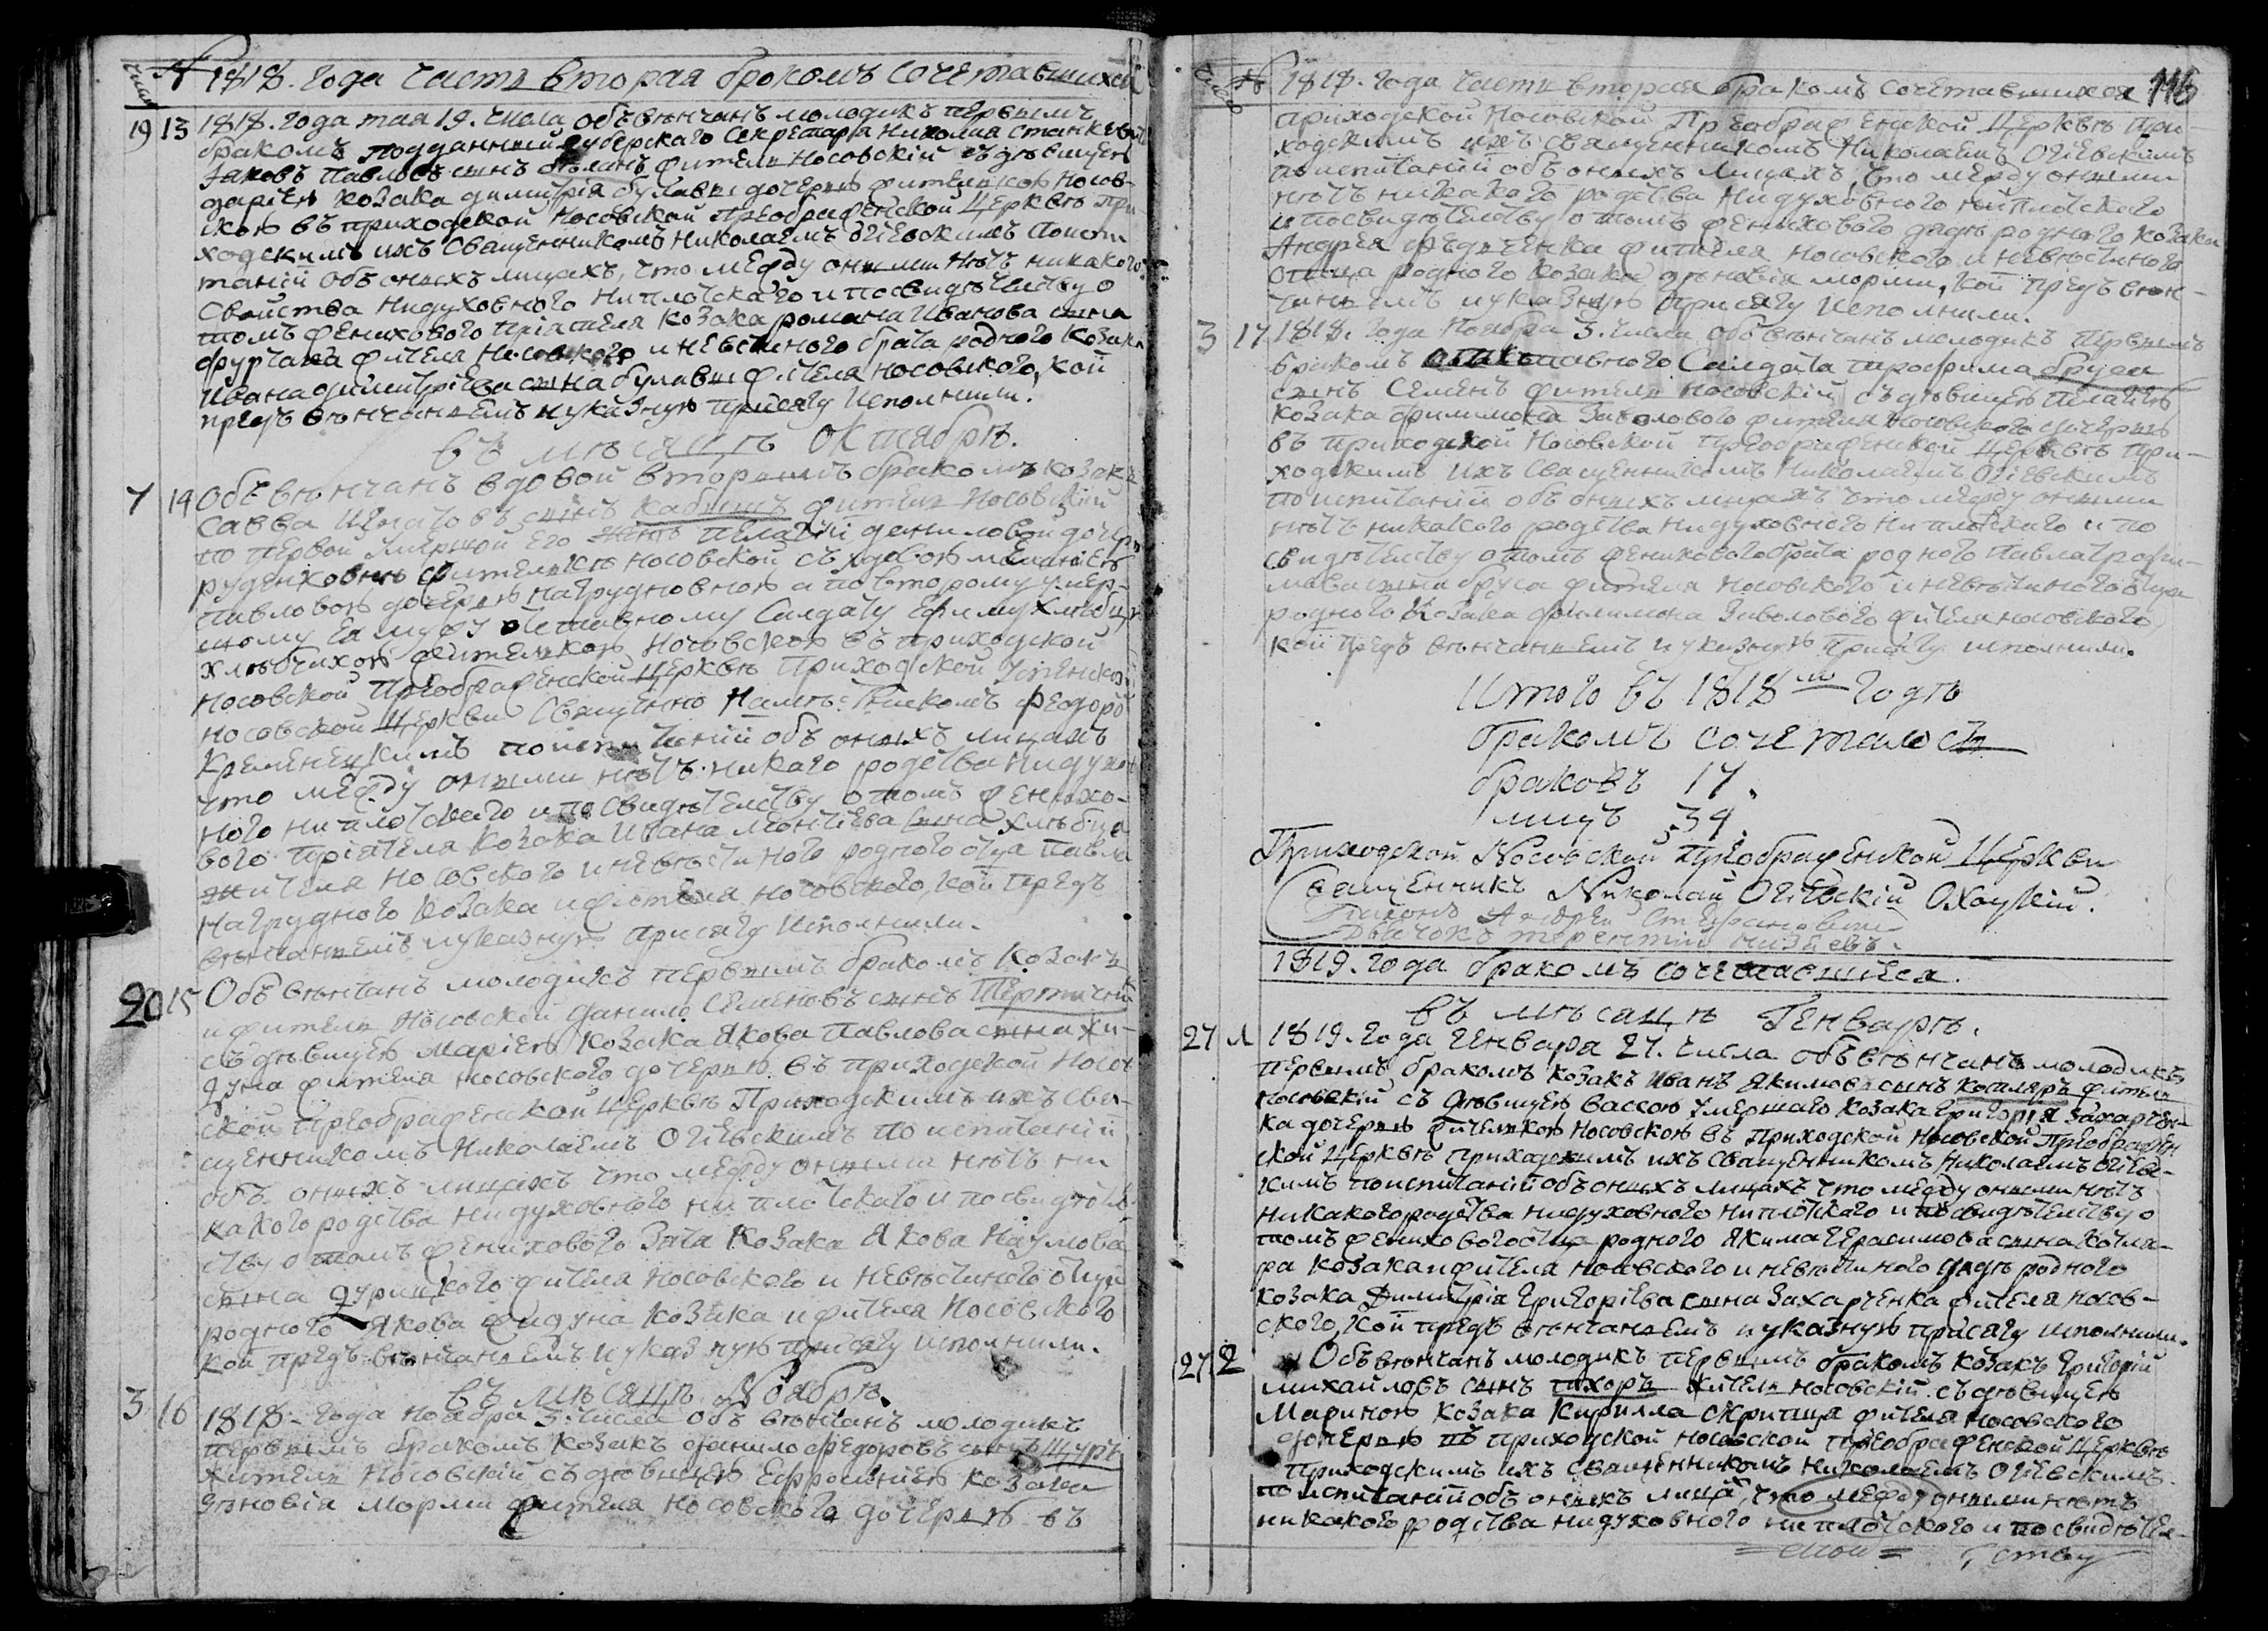 число № 1818. года часть вторая бракомъ сочетавшихся
19 13 1818. года мая 19. числа объвѣнчанъ молодикъ первымъ
бракомъ подданный губерского Секретаря Николая
Яковъ Павловъ сынъ житель Носовскій съ дѣвицею
Дариею козака димитрія булавы дочерью жителькою Носов-
скою въ приходской Носовской Преображенской Церквѣ При
ходскимъ ихъ Священникомъ Николаемъ Огіевскимъ Поиспи
таній объ оныхъ лицахъ, что между оными нѣтъ никакого
Свойства нидуховного Ниплотскаго и посвидѣтельству о
томъ женихового пріятеля козака романа Иванова сына
жителя Носовского и невѣстиного брата родного козака
Ивана димитріева сына булавы жителя носовского, кои
предъ вѣнчаньемъ иуказную присягу исполнили.
въ мѣсяцѣ октябрѣ.
7 14 Объвѣнчанъ вдовой вторымъ бракомъ козакъ
савва Игнатовъ сынъ кабышъ житель Носовскій
по первой умершой его женѣ пелагіи даниловой дочери
руденковнѣ жителькѣ носовской съ удовою меланіею
павловою дочерью Нагрудновною а повторому умер-
шому ея мужу отставному Салдату Ефиму хлѣбцу
хлѣбчихою жителькою Носовскою въ приходской
Носовской Преображенской Церквѣ Приходской Успенской
носовской Церкви Священно Намѣстникомъ Федоромъ
Кременецкимъ поиспитаній объ оныхъ лицахъ
что между оными нѣтъ никаго родства нидухов
ного ни плотскаго и по свидѣтельству о томъ женихо-
вого пріятеля козака Ивана Леонтіева сына хлѣбца
жителя носовского иневѣстиного родного отца Павла
Нагрудного козака ижителя носовского, кои предъ
вѣнчаньемъ иуказную присягу исполнили.
20 15 Объвѣнчанъ молодикъ первымъ бракомъ козакъ
и житель Носовскій данило Семеновъ сынъ
съ дѣвицею Маріею козака Якова Павлова сына жи-
дуна жителя носовского дочерью въ приходской Носов
ской Преображенской Церквѣ Приходскимъ ихъ Свя-
щенникомъ Николаемъ Огіевскимъ По испитаній
объ оныхъ лицахъ что между оными нѣтъ ни
какого родства нидуховного ни плотского и посвидѣтель
ству о томъ женихового Зятя Козака Якова Наумова
сына дурицкого жителя носовского и невѣстиного отца
родного Якова жидуна козака и жителя Носовского
кои предъ вѣнчаньемъ и указную присягу исполнили.
въ мѣсяцѣ Ноябрѣ.
3 16 1818. года Ноября 3. числа объвѣнчанъ молодикъ
первымъ бракомъ козакъ данило федоровъ сынъ Щуръ
житель Носовскій съ дѣвицею Ефросиніею козака
Зѣновія Морми жителя носовского дочерью въ
число № 1818. года часть вторая бракомъ сочетавшихся 116
приходской Носовской Преображенской Церквѣ При-
ходскимъ ихъ священникомъ Николаемъ Огіевскимъ
поиспитаній объ оныхъ лицахъ, что между оными
нѣтъ никакого родства Нидуховного ниплотского
и посвидѣтельству о томъ женихового дядѣ родного козака
Андрея Федченка жителя Носовского и невѣстиного
отца родного козака Зѣновія морми, кои предъ вѣн-
чаньемъ иуказную присягу исполнили.
3 17 1818. года Ноября 3. числа объвѣнчанъ молодикъ Первымъ
бракомъ отставного Салдата трофима бруса
сынъ Семенъ житель носовскій съ дѣвицею пелагіею
козака филимона Заволового жителя носовского дочерью
въ приходской Носовской преображенской Церквѣ При-
ходскимъ ихъ Священникомъ Николаемъ Огіевскимъ
поиспитаній объ оныхъ лицахъ что между оными
нѣтъ никакого родства нидуховного ни плотского и по
свидѣтельству о томъ женихового брата родного Павла трофи-
мова сына бруса жителя Носовского и невѣстиного отца
родного козака филимона Заволового жителя носовского,
кои предъ вѣнчаньемъ и указную присягу исполнили.
Итого въ 1818м годѣ
бракомъ сочеталось
браковъ 17.
лицъ 34.
Приходской Носовской Преображенской Церкви
Священникъ Николай Огіевскій
Диаконъ Андрей Стефановичъ
Дьячокъ терентій
1819. года бракомъ сочетавшиеся.
въ мѣсацѣ Генварѣ.
27 1 1819. года генвара 27. числа объвѣнчанъ молодикъ
первымъ бракомъ козакъ Иванъ Якимовъ сынъ котляръ житель
носовскій съ дѣвицею вассою умершаго козака Григорія Захарчен-
ка дочерью жителькою Носовскою въ приходской Носовской Преображен
ской Церквѣ приходскимъ ихъ священникомъ Николаемъ Огіевс-
кимъ поиспитаній объ оныхъ лицахъ что между оными нѣтъ
никакого родства нидуховного ниплотского и посвидѣтельству о
томъ женихового отца родного Якима Герасимова сына котля-
ра козака и жителя носовского и невѣстиного дядѣ родного
козака Димитрія Григоріева сына Захарченка жителя носов-
ского, кои предъ вѣнчаньемъ и указную присягу исполнили.
27 2 Объвѣнчанъ молодикъ первымъ бракомъ козакъ Григорій
михайловъ сынъ тхоръ житель носовскій съ дѣвицею
Мариною козака Кирилла скрипца жителя носовского
дочерью въ приходской носовской преображенской Церквѣ
Приходскимъ ихъ священникомъ Николаемъ Огіевскимъ
поиспитаній объ оныхъ лица, что между оными нѣтъ
никакого родства нидуховного ни плотского и посвидѣтел-
ству